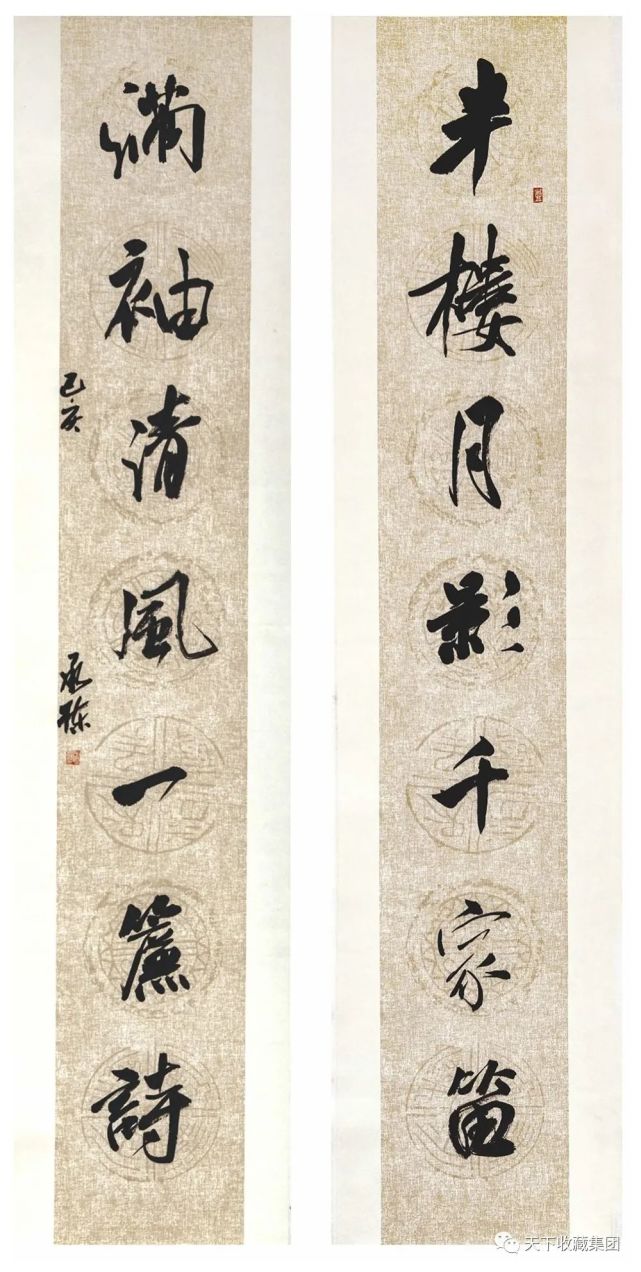 半樓月影千家笛
滿袖清風一簾詩
己亥
承棟
天下收藏集团